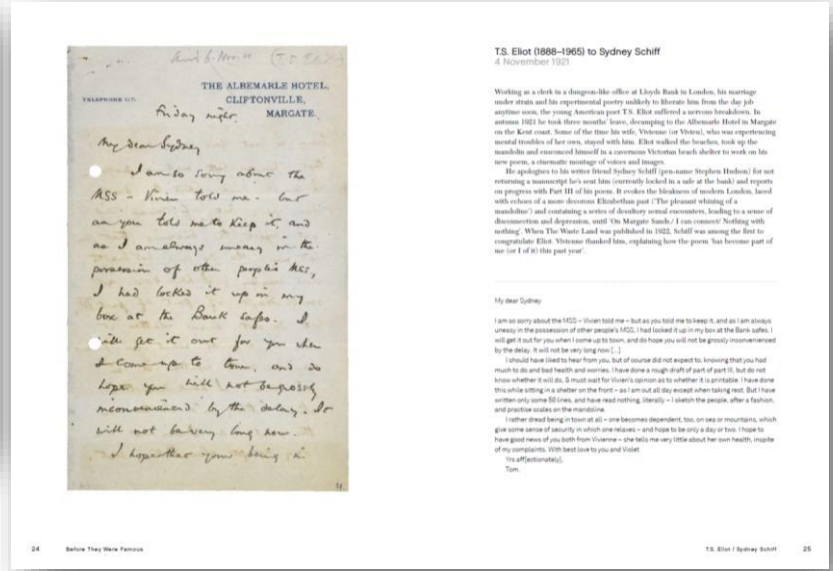 THE ALBEMARLE HOTEL,
CLIFTONVILLE,
MARGATE.
Friday night.
My dear Sydney
I am so sorry about the
MSS – Vivien told me – but
as you told me to keep it, and
as I am always uneasy in the
possession of other people's MSS,
I had locked it up in my
box at the Bank safes. I
will get it out for you when
I come up to town, and do
hope you will not be grossly
inconvenienced by the delay. It
will not be very long now.
I hope that your being in
24
Before They Were Famous
T.S. Eliot (1888–1965) to Sydney Schiff
4 November 1921
Working as a clerk in a dungeon-like office at Lloyds Bank in London, his marriage
under strain and his experimental poetry unlikely to liberate him from the day job
anytime soon, the young American poet T.S. Eliot suffered a nervous breakdown. In
autumn 1921 he took three months' leave, decamping to the Albemarle Hotel in Margate
on the Kent coast. Some of the time his wife, Vivienne (or Vivien), who was experiencing
mental troubles of her own, stayed with him. Eliot walked the beaches, took up the
mandolin and ensconced himself in a cavernous Victorian beach shelter to work on his
new poem, a cinematic montage of voices and images.
He apologises to his writer friend Sydney Schiff (pen-name Stephen Hudson) for not
returning a manuscript he's sent him (currently locked in a safe at the bank) and reports
on progress with Part III of his poem. It evokes the bleakness of modern London, laced
with echoes of a more decorous Elizabethan past ('The pleasant whining of a
mandoline') and containing a series of desultory sexual encounters, leading to a sense of
disconnection and depression, until 'On Margate Sands./ I can connect/ Nothing with
nothing'. When The Waste Land was published in 1922, Schiff was among the first to
congratulate Eliot. Vivienne thanked him, explaining how the poem 'has become part of
me (or I of it) this past year'.
My dear Sydney
I am so sorry about the MSS – Vivien told me – but as you told me to keep it, and as I am always
uneasy in the possession of other people's MSS, I had locked it up in my box at the Bank safes. I
will get it out for you when I come up to town, and do hope you will not be grossly inconvenienced
by the delay. It will not be very long now [...]
I should have liked to hear from you, but of course did not expect to, knowing that you had
much to do and bad health and worries. I have done a rough draft of part of part III, but do not
know whether it will do, & must wait for Vivien's opinion as to whether it is printable. I have done
this while sitting in a shelter on the front – as I am out all day except when taking rest. But I have
written only some 50 lines, and have read nothing, literally – I sketch the people, after a fashion,
and practise scales on the mandoline.
I rather dread being in town at all – one becomes dependent, too, on sea or mountains, which
give some sense of security in which one relaxes – and hope to be only a day or two. I hope to
have good news of you both from Vivienne – she tells me very little about her own health, inspite
of my complaints. With best love to you and Violet
Yrs aff[ectionately],
Tom.
T.S. Eliot / Sydney Schiff
25